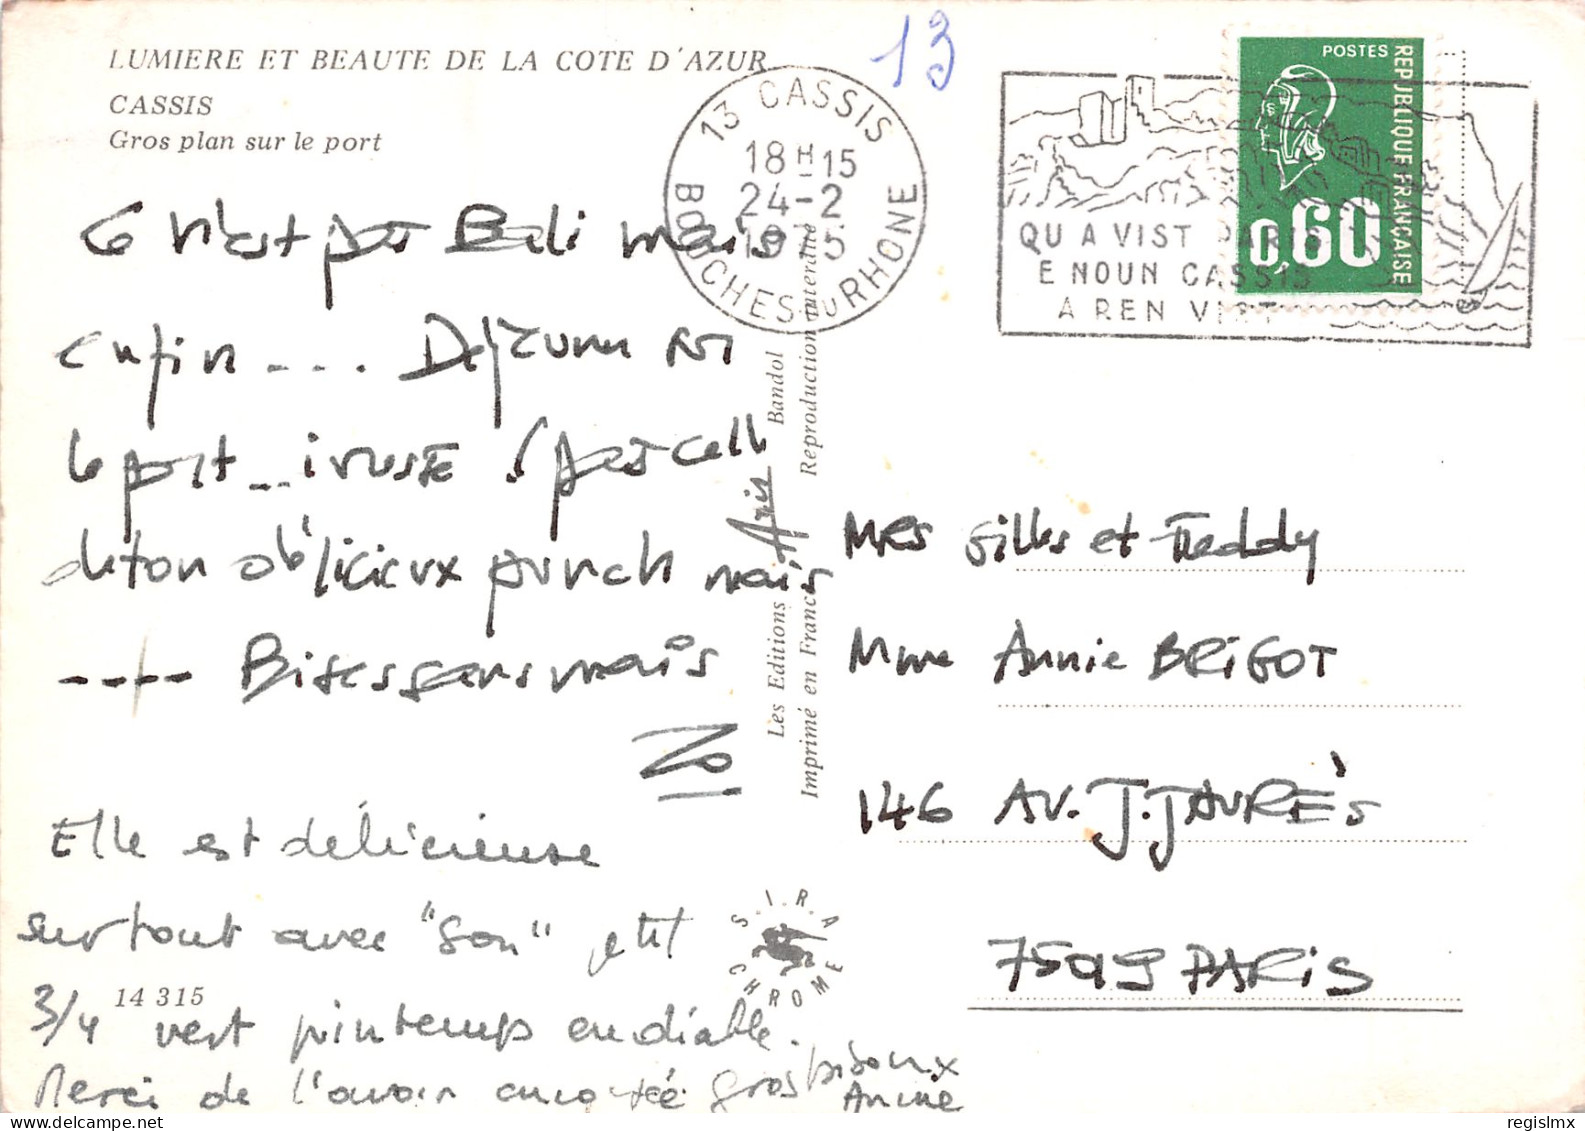 LUMIERE ET BEAUTE DE LA COTE D'AZUR
CASSIS
Gros plan sur le port
13
13 CASSIS
18 H 15
24-2
1975
BOUCHES DU RHONE
QU A VIST PARIS
E NOUN CASSIS
A REN VIST
POSTES
REPUBLIQUE FRANÇAISE
0,60
Ce n'est pas Bali mais
enfin .... Déjeuner sur
le port ... ivresse
de ton délicieux punch mais
---- Bises sans maïs
Zo
Elle est délicieuse
surtout avec "son" petit
3/4 vert printemps endiablé.
Merci de l'avoir gros bisoux
Annie
14 315
Les Editions Aris Bandol
Imprimé en France Reproduction interdite
S.I.R.A
CHROME
Mrs Gilles et Freddy
Mme Annie BRIGOT
146 AV. J. JAURÈS
75019 PARIS
regislmx